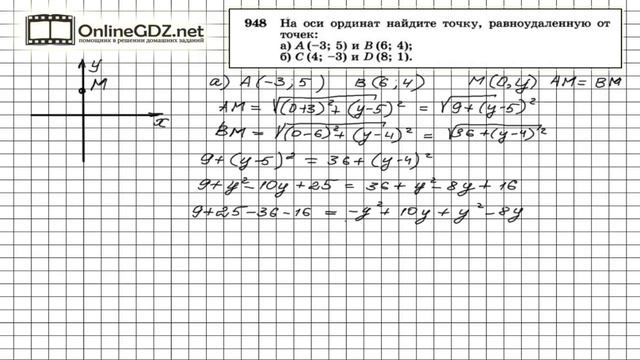 OnlineGDZ.net
помощник в решении домашних заданий
948 На оси ординат найдите точку, равноудаленную от
точек:
а) A (−3; 5) и B (6; 4);
б) C (4; −3) и D (8; 1).
y
M
x
а) A(-3; 5) B(6; 4) M(0, y) AM = BM
AM = √((0+3)² + (y-5)²) = √(9+(y-5)²)
BM = √((0-6)² + (y-4)²) = √(36+(y-4)²)
9+(y-5)² = 36+(y-4)²
9+y²-10y+25 = 36+y²-8y+16
9+25-36-16 = -y²+10y+y²-8y